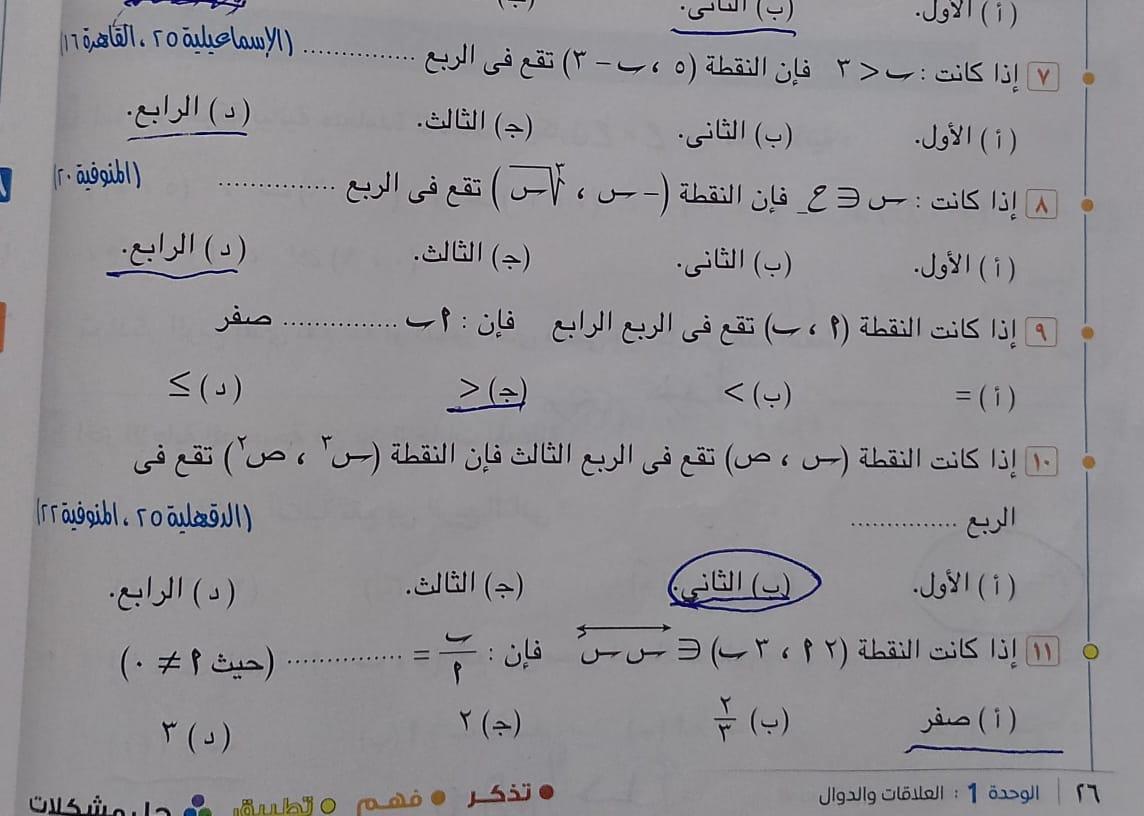 (أ) الأول. (ب) الثانى.
٧ إذا كانت : ب < ٣ فإن النقطة (٥ ، ب − ٣) تقع فى الربع .............. (الإسماعيلية ٢٥ ، القاهرة ١٦)
(أ) الأول. (ب) الثانى. (ج) الثالث. (د) الرابع.
٨ إذا كانت : س ∈ ع₋ فإن النقطة (− س ، ∛س) تقع فى الربع .............. (المنوفية ٢٠)
(أ) الأول. (ب) الثانى. (ج) الثالث. (د) الرابع.
٩ إذا كانت النقطة (أ ، ب) تقع فى الربع الرابع فإن : أ ب .............. صفر
(أ) = (ب) > (ج) < (د) ≥
١٠ إذا كانت النقطة (س ، ص) تقع فى الربع الثالث فإن النقطة (س³ ، ص²) تقع فى
الربع .............. (الدقهلية ٢٥ ، المنوفية ٢٢)
(أ) الأول. (ب) الثانى. (ج) الثالث. (د) الرابع.
١١ إذا كانت النقطة (٢ أ ، ٣ ب) ∈ س س َ فإن : ب/أ = .............. (حيث أ ≠ ٠)
(أ) صفر (ب) ٢/٣ (ج) ٢ (د) ٣
٢٦ الوحدة 1 : العلاقات والدوال • تذكر • فهم ○ تطبيق حل مشكلات